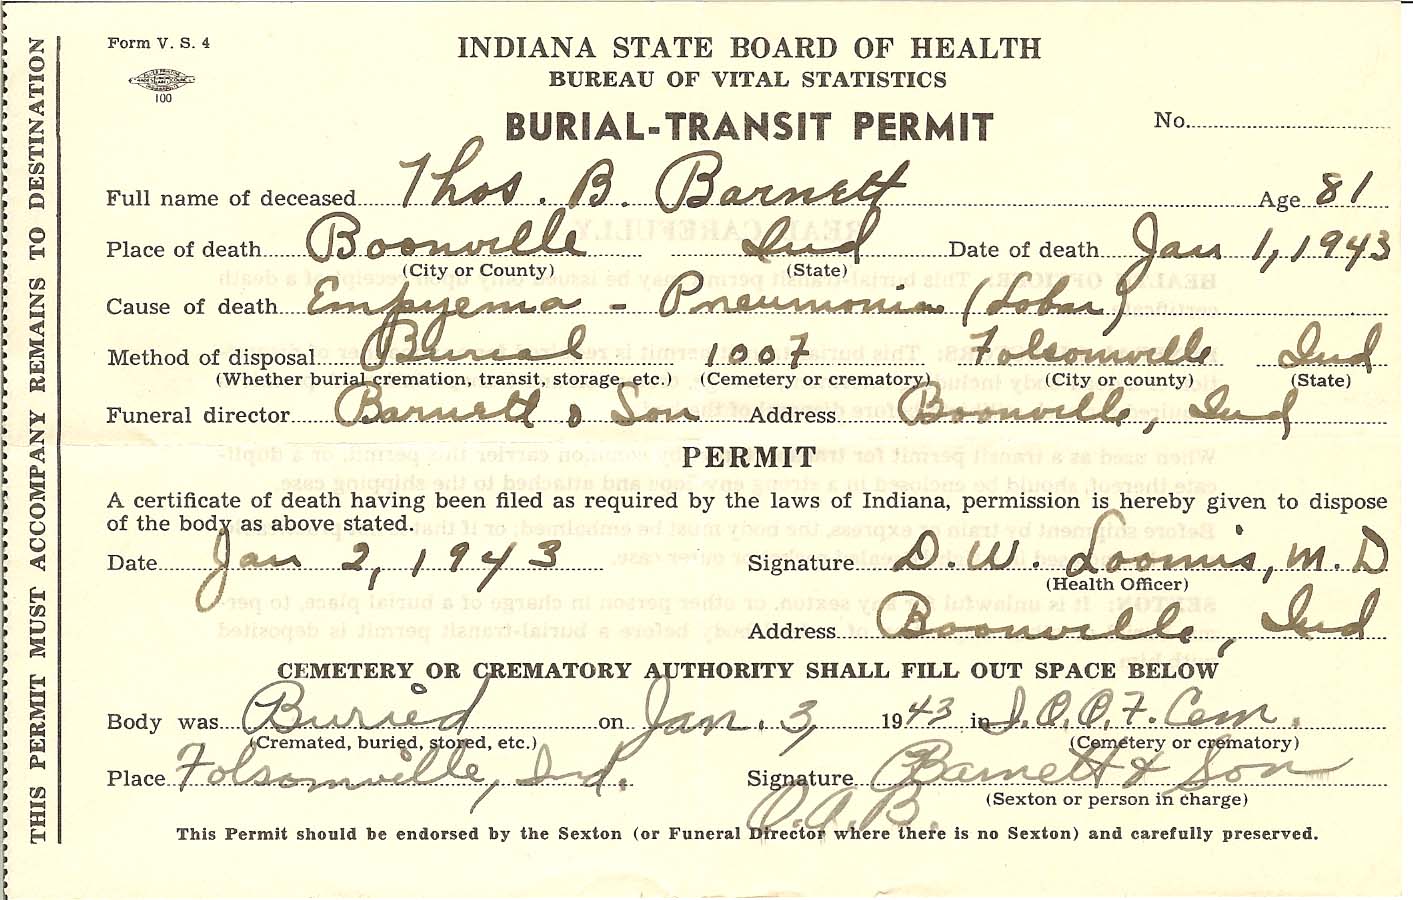 Form V. S. 4
100
INDIANA STATE BOARD OF HEALTH
BUREAU OF VITAL STATISTICS
BURIAL-TRANSIT PERMIT
No.
THIS PERMIT MUST ACCOMPANY REMAINS TO DESTINATION
Full name of deceased Thos. B. Barnett Age 81
Place of death Boonville Ind Date of death Jan 1, 1943
(City or County) (State)
Cause of death Empyema - Pneumonia (Lobar)
Method of disposal Burial 1007 Folsomville Ind
(Whether burial cremation, transit, storage, etc.) (Cemetery or crematory) (City or county) (State)
Funeral director Barnett & Son Address Boonville, Ind
PERMIT
A certificate of death having been filed as required by the laws of Indiana, permission is hereby given to dispose
of the body as above stated.
Date Jan 2, 1943 Signature D. W. Loomis, M. D
(Health Officer)
Address Boonville, Ind
CEMETERY OR CREMATORY AUTHORITY SHALL FILL OUT SPACE BELOW
Body was Buried on Jan. 3, 1943 in I. O. O. F. Cem.
(Cremated, buried, stored, etc.) (Cemetery or crematory)
Place Folsomville, Ind. Signature Barnett & Son
(Sexton or person in charge)
O. A. B.
This Permit should be endorsed by the Sexton (or Funeral Director where there is no Sexton) and carefully preserved.